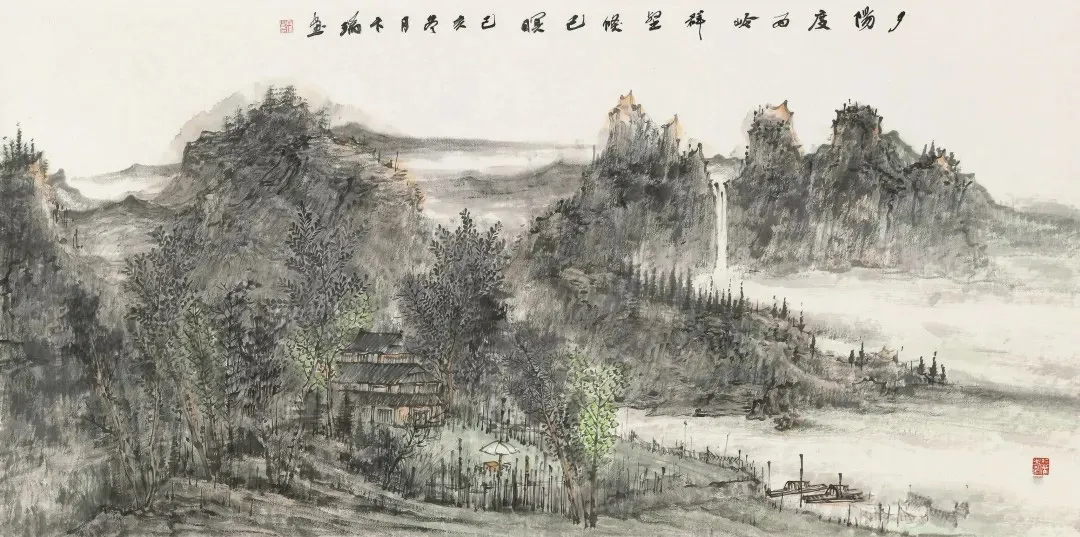 夕陽度西岭群壑倏已暝 己亥冬月瑞畫